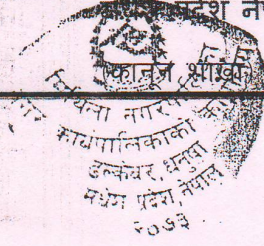 प्रदेश ने
(कानून शाखा)
मिथिला नगरपा
कार्यपालिकाको का
ढल्केवर, धनुषा
मधेश प्रदेश, नेपाल
२०७३